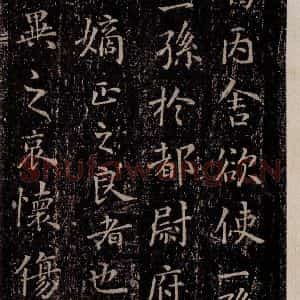 丙舍欲使一孫
一孫於都尉府
嫡正之良者也
異之哀懷傷
shufawang.cn